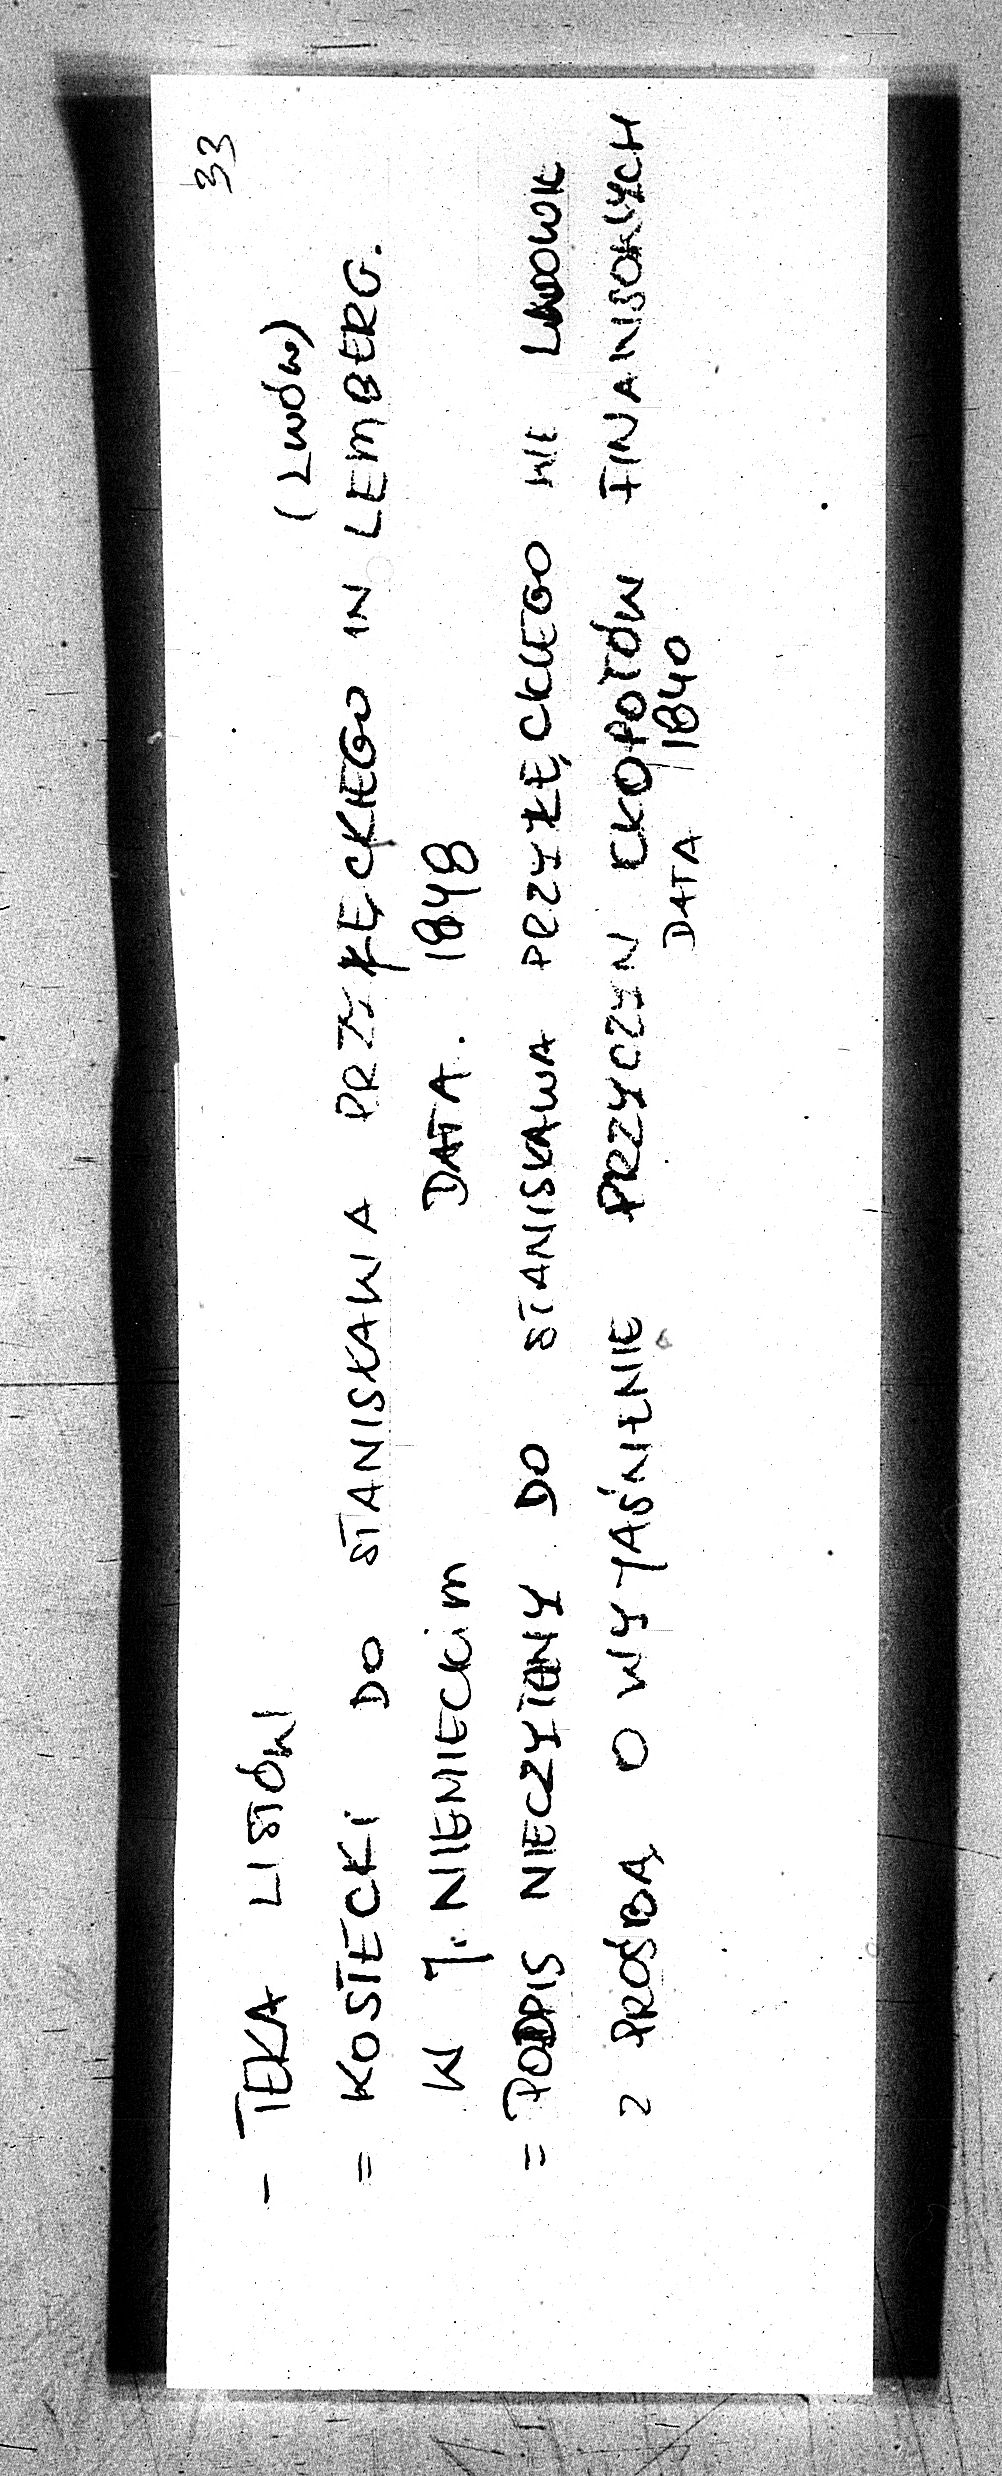 33
- TEKA LISTÓW
(LWÓW)
= KOSTECKI DO STANISŁAWA PRZYŁĘCKIEGO IN LEMBERG.
W J. NIEMIECKIM DATA. 1848
= PODPIS NIECZYTENY DO STANISŁAWA PRZYŁĘCKIEGO WE
Z PROŚBĄ O WYJAŚNIENIE PRZYCZYN KŁOPOTÓW FINANSOWYCH
DATA 1840